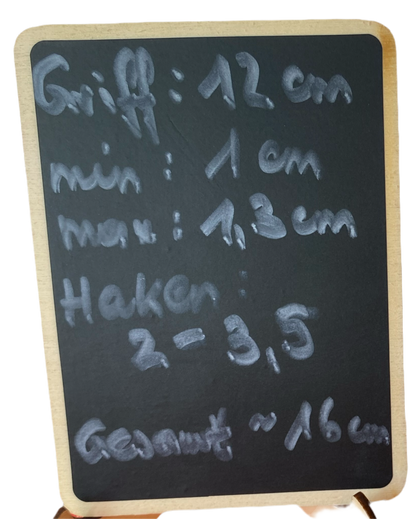 Griff: 12 cm
min: 1 cm
max: 1,3 cm
Haken:
2-3,5
Gesamt ~ 16 cm